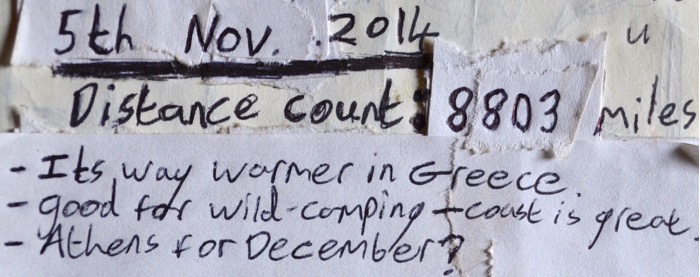 5th Nov. 2014
u
Distance count: 8803 miles
- Its way warmer in Greece.
- good for wild-camping + coast is great.
- Athens for December?